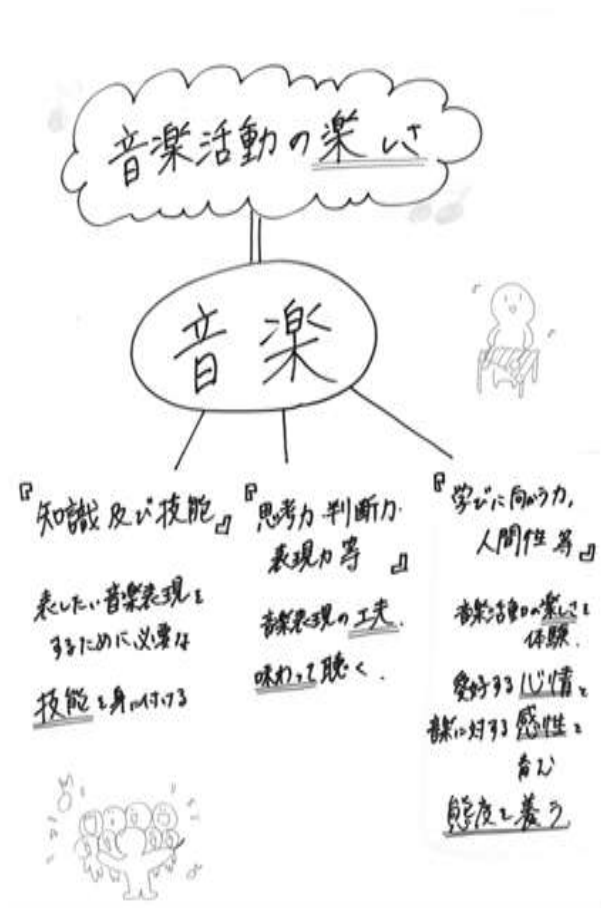 音楽活動の楽しさ
音楽
『知識及び技能』
表したい音楽表現を
するために必要な
技能を身に付ける
『思考力 判断力・
表現力等』
音楽表現の工夫.
味わって聴く.
『学びに向かう力,
人間性等』
音楽活動の楽しさを
体験.
愛好する心情と
音楽に対する感性を
育む
態度を養う